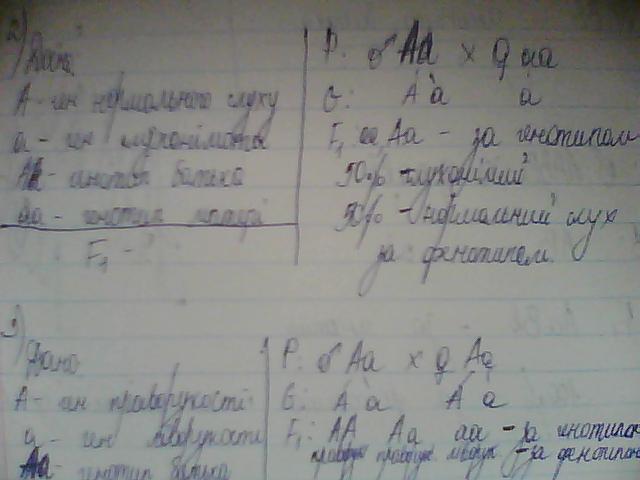 2) Дано:
А - ген нормального слуху
а - ген глухонімоти
Аа - генотип батька
аа - генотип матері
F₁ - ?
Р: ♂ Аа × ♀ аа
G: А а а
F₁ аа, Аа - за генотипом
50% - глухонімий
50% - нормальний слух
за фенотипом.
3) Дано
А - ген праворукості
а - ген ліворукости
Аа - генотип батька
Р: ♂ Аа × ♀ Аа
G: А а А а
F₁: АА Аа аа - за генотипом
праворук праворук ліворук - за фенотипом